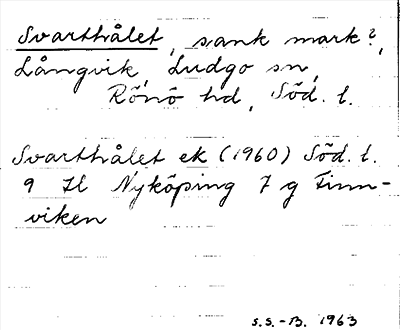 Svarthålet, sank mark?,
Långvik, Ludgo sn,
Rönö hd, Söd. l.
Svarthålet ek (1960) Söd. l.
9 H Nyköping 7 g Finn-
viken
S.S.-B. 1963